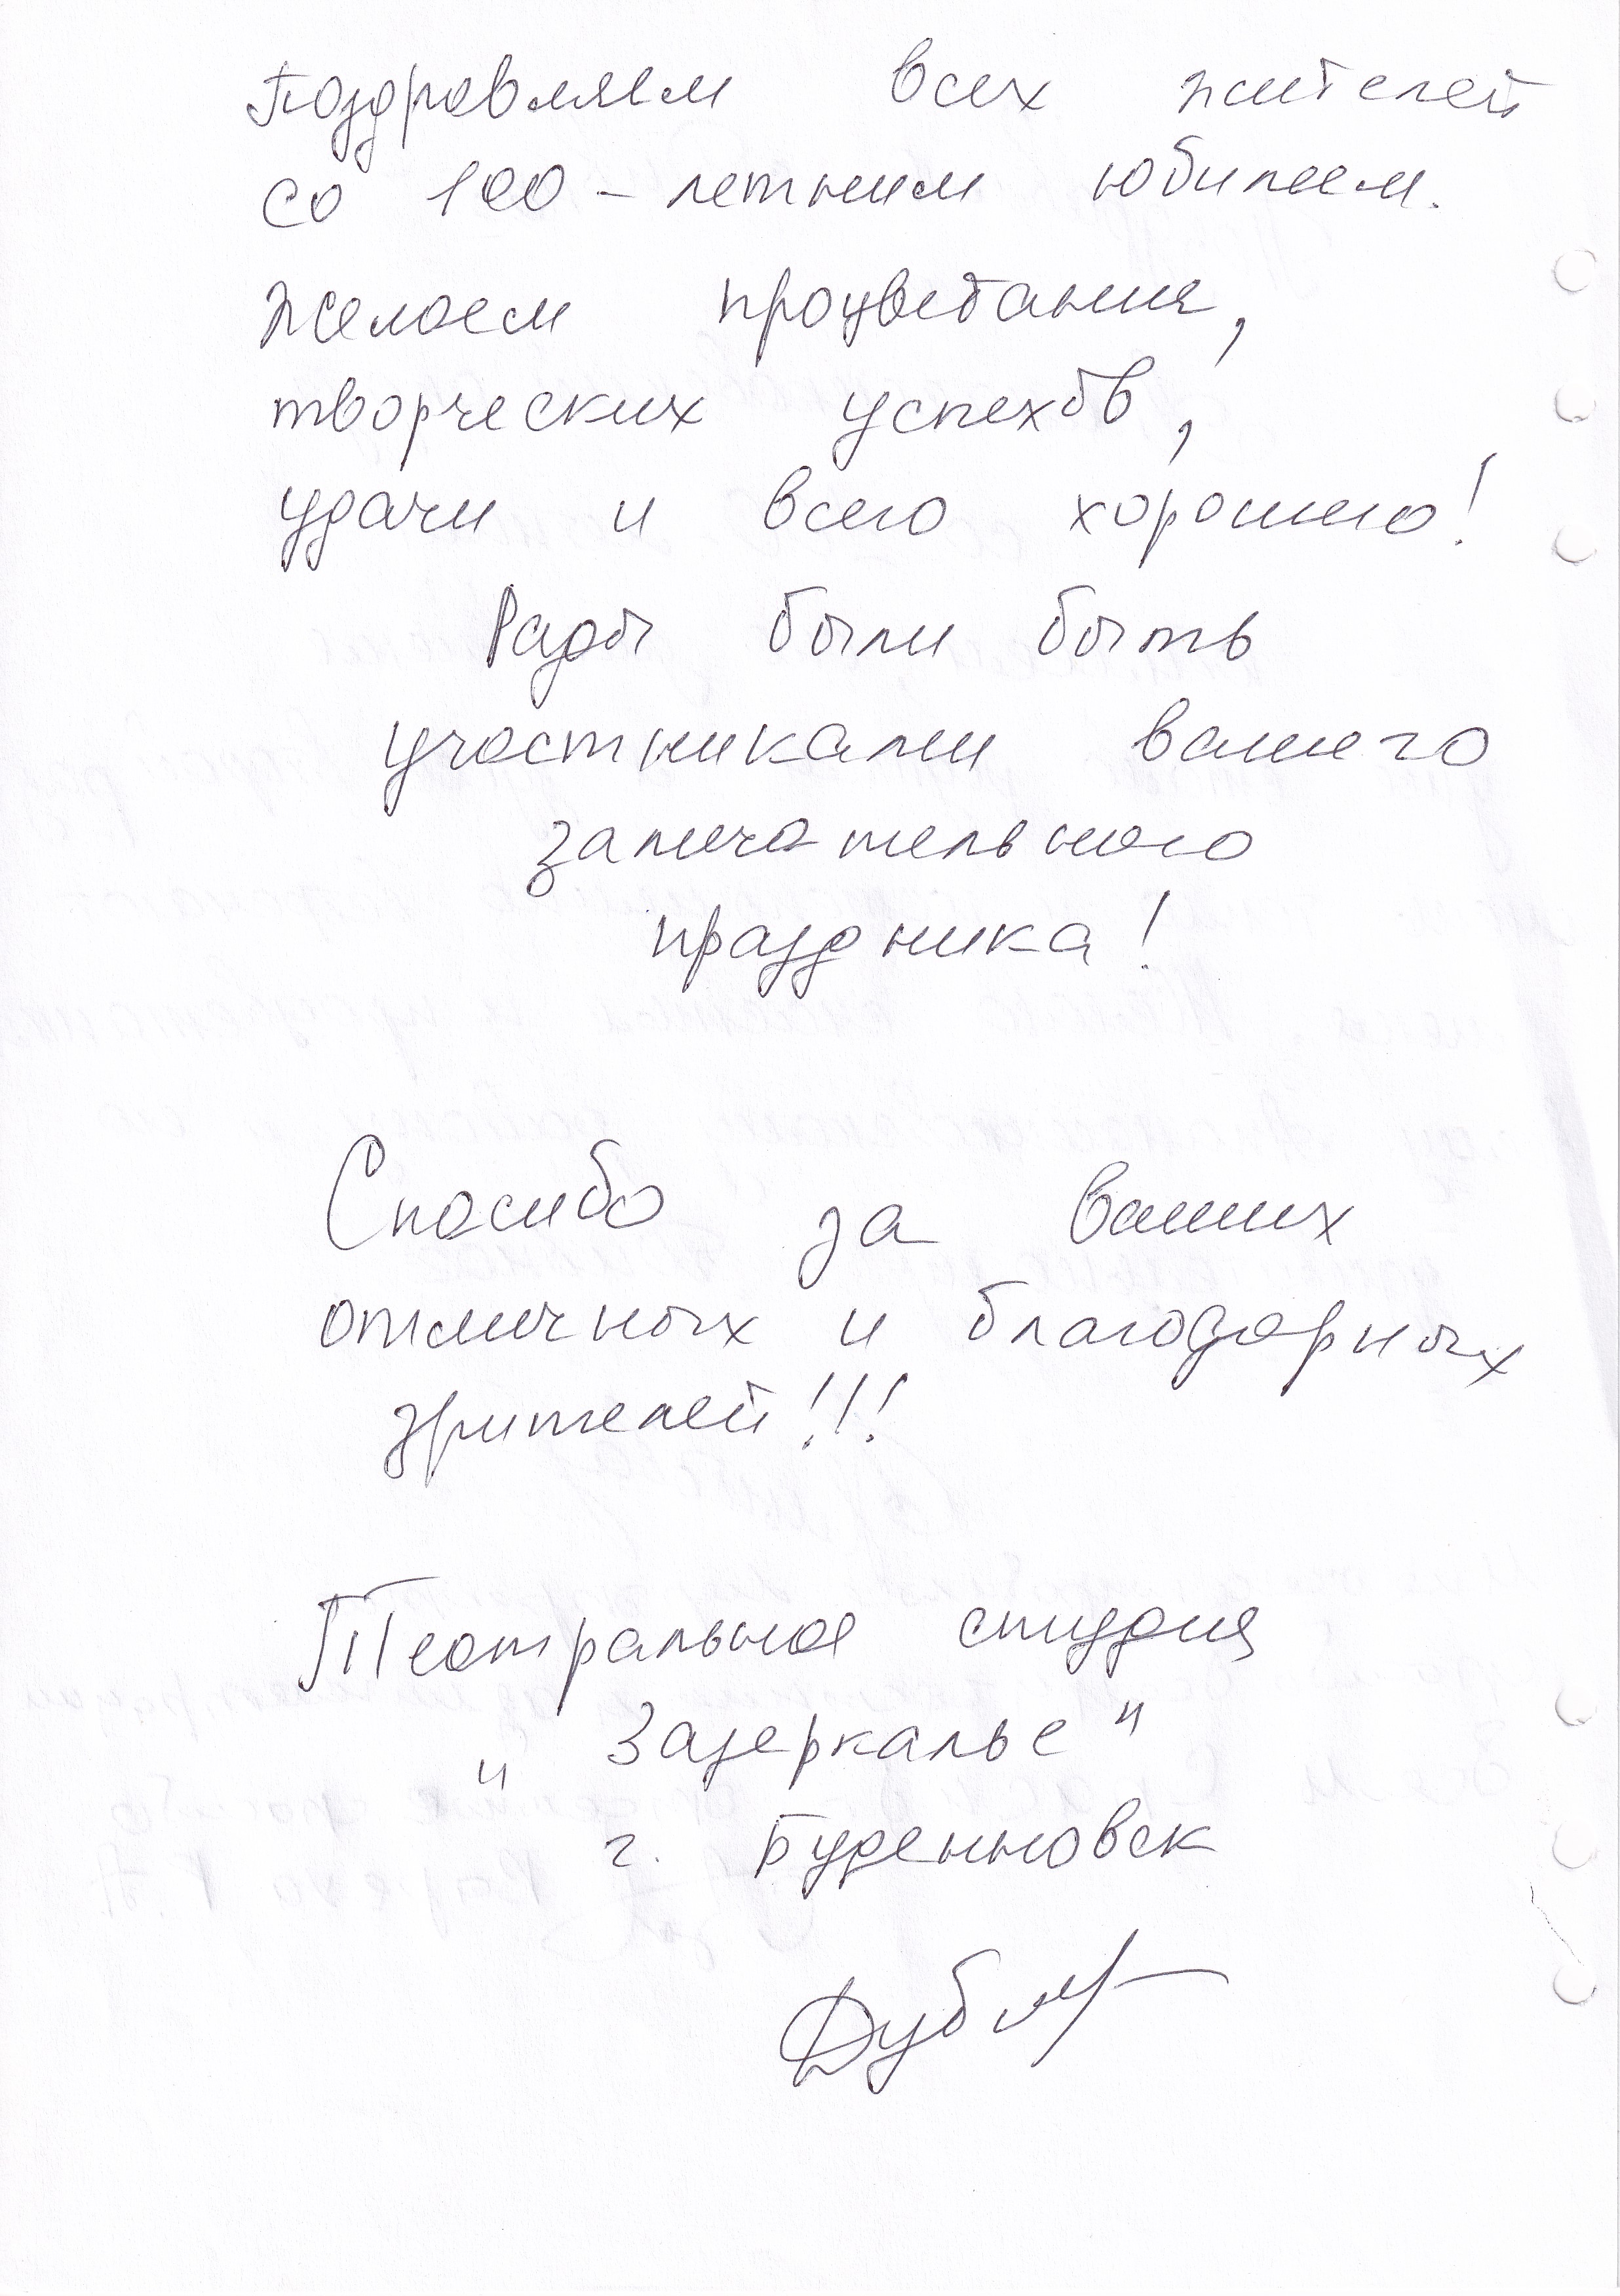 Поздравляем всех жителей
со 100-летним юбилеем.
Желаем процветания,
творческих успехов,
удачи и всего хорошего!
Рады были быть
участниками вашего
замечательного
праздника!
Спасибо за ваших
отличных и благодарных
зрителей!!!
Театральная студия
„Зазеркалье"
г. Буденновск